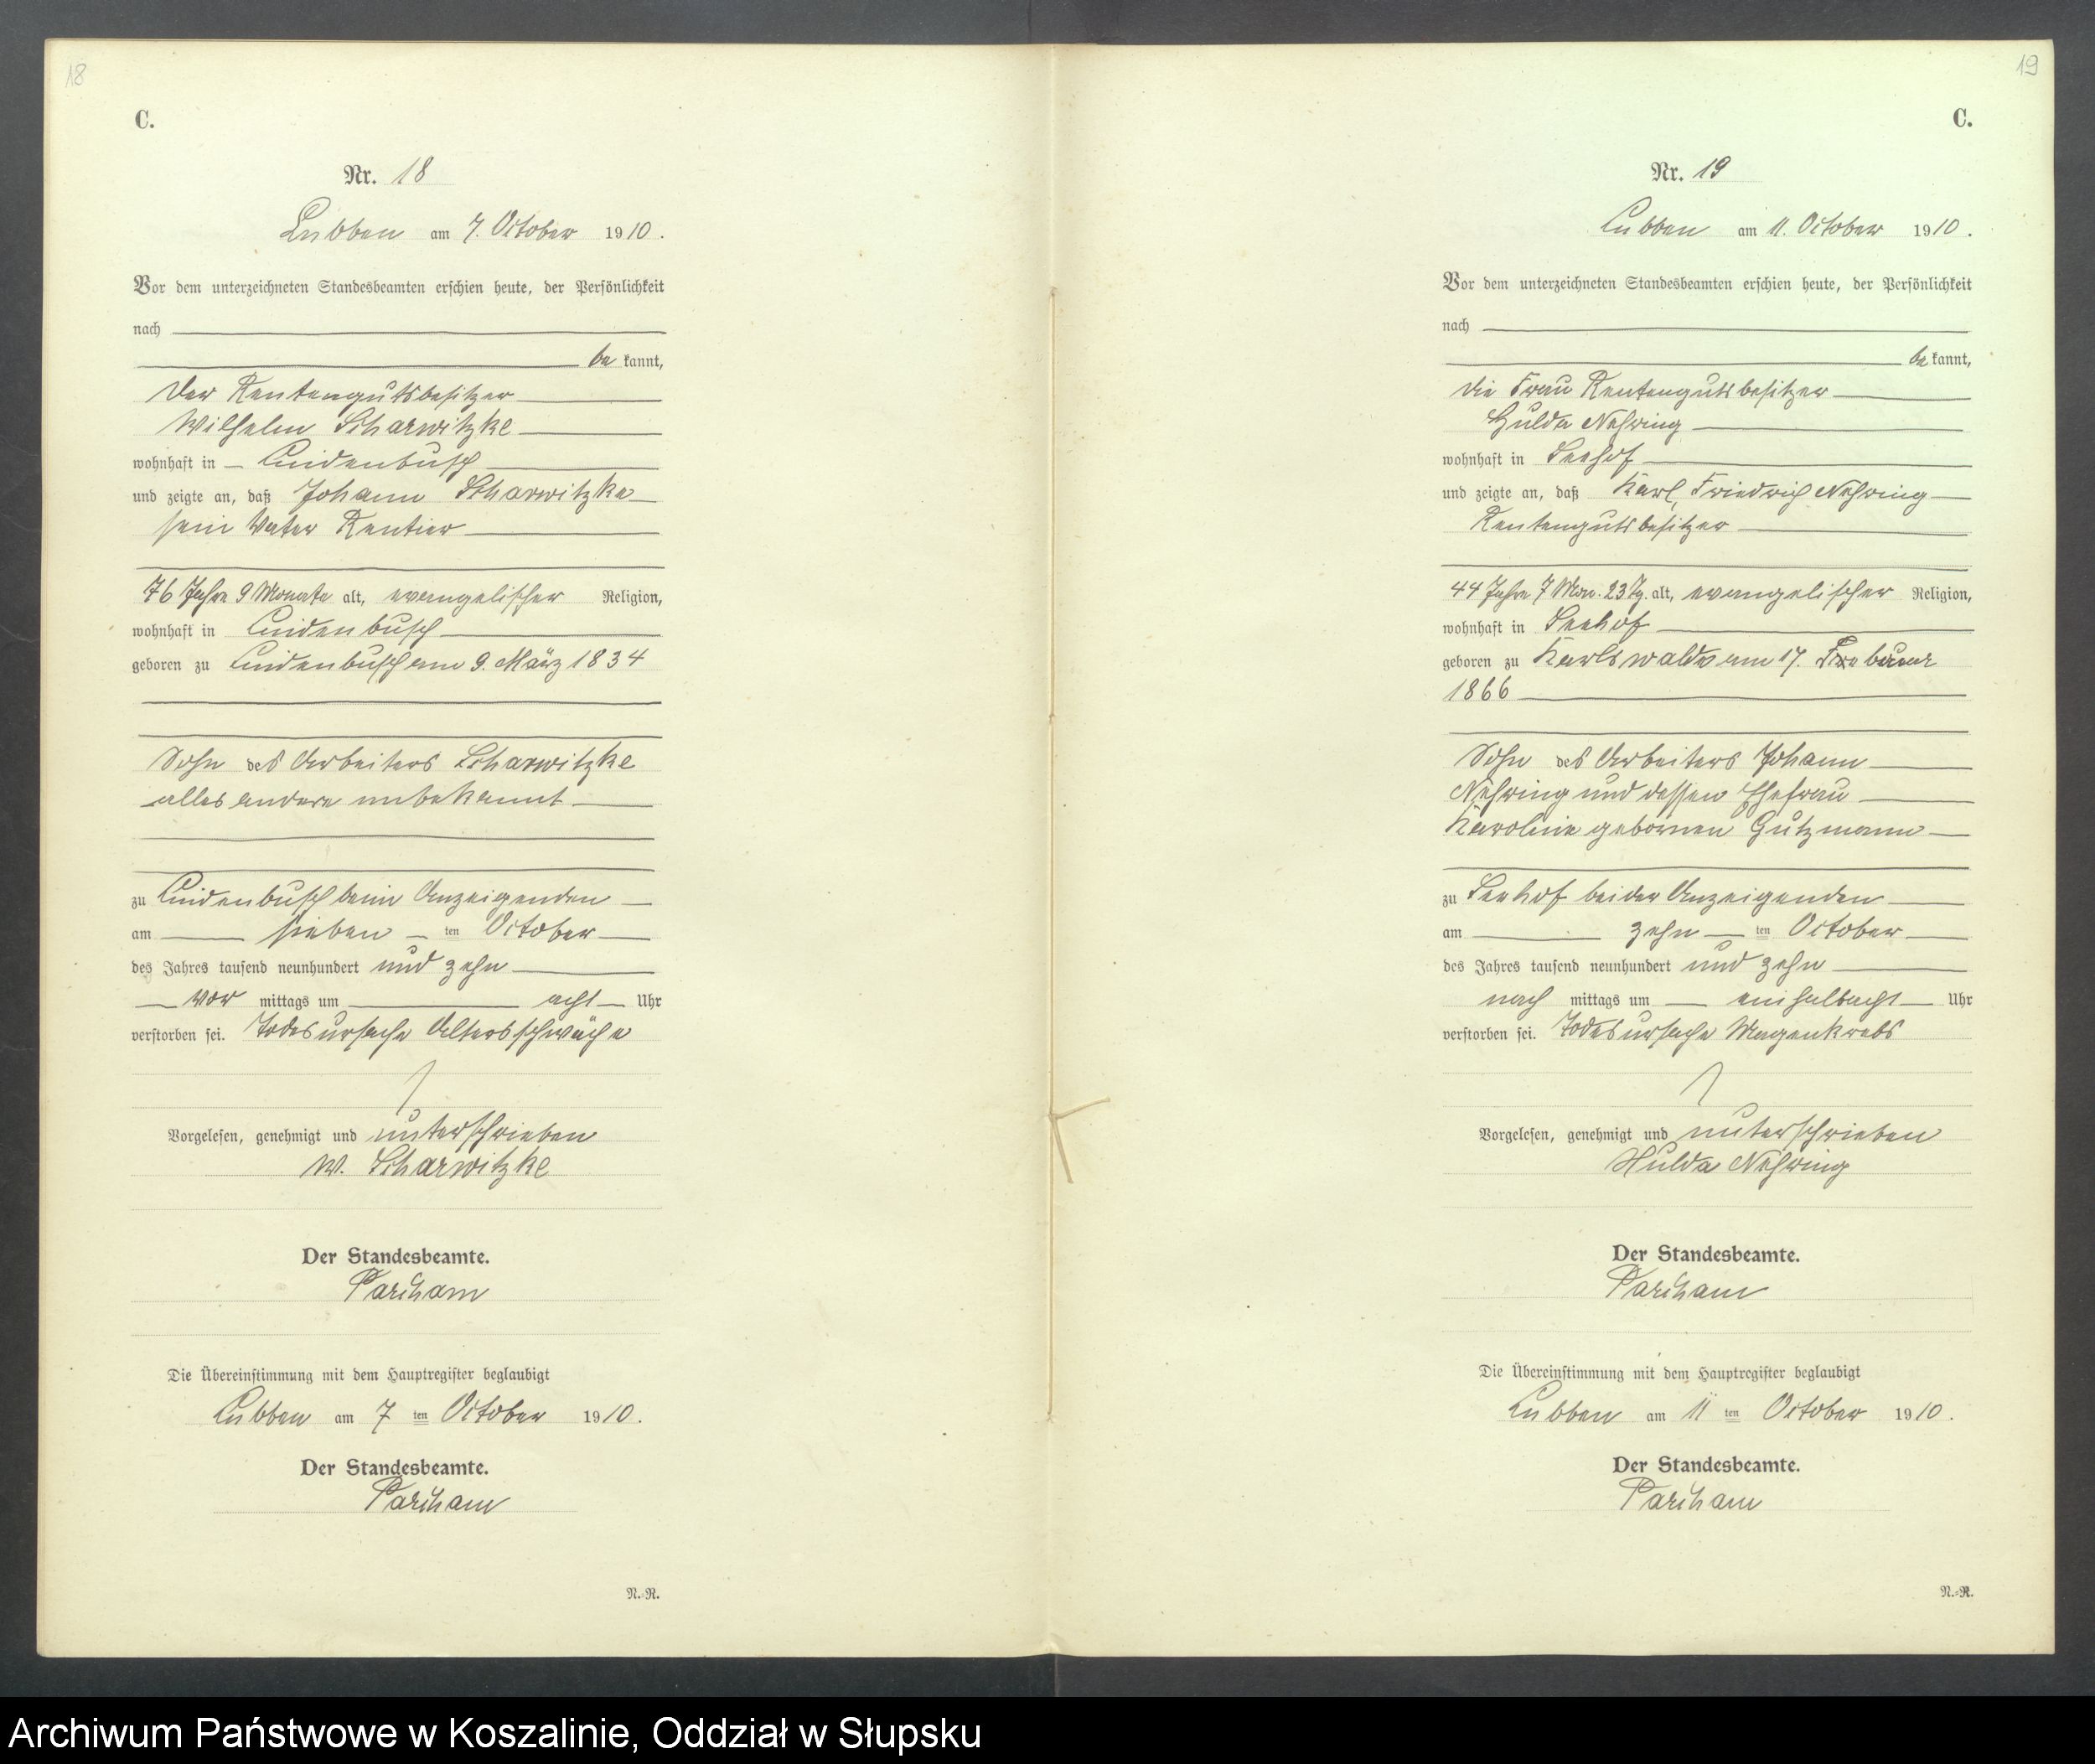 18
C.
Nr. 18
Lubben am 7. October 1910.
Vor dem unterzeichneten Standesbeamten erschien heute, der Persönlichkeit
nach
be kannt,
der Rentengutsbesitzer
Wilhelm Scharwitzke
wohnhaft in Lindenbusch
und zeigte an, daß Johann Scharwitzke
sein Vater Rentier
76 Jahre 9 Monate alt, evangelischer Religion,
wohnhaft in Lindenbusch
geboren zu Lindenbusch am 9. März 1834
Sohn des Arbeiters Scharwitzke
alles andere unbekannt
zu Lindenbusch beim Anzeigenden
am sieben ten October
des Jahres tausend neunhundert und zehn
vor mittags um acht Uhr
verstorben sei. Todesursache Altersschwäche
Vorgelesen, genehmigt und unterschrieben
W. Scharwitzke
Der Standesbeamte.
Parcham
Die Übereinstimmung mit dem Hauptregister beglaubigt
Lubben am 7 ten October 1910.
Der Standesbeamte.
Parcham
N.=R.
19
C.
Nr. 19
Lubben am 11. October 1910.
Vor dem unterzeichneten Standesbeamten erschien heute, der Persönlichkeit
nach
be kannt,
die Frau Rentengutsbesitzer
Hulda Nehring
wohnhaft in Seehof
und zeigte an, daß Karl, Friedrich Nehring
Rentengutsbesitzer
44 Jahre 7 Mon. 23 Tg. alt, evangelischer Religion,
wohnhaft in Seehof
geboren zu Karlswalde am 17.
1866
Sohn des Arbeiters Johann
Nehring und dessen Ehefrau
Karoline gebornen Gutzmann
zu Seehof bei der Anzeigenden
am zehn ten October
des Jahres tausend neunhundert und zehn
nach mittags um ein halbacht Uhr
verstorben sei. Todesursache Magenkrebs
Vorgelesen, genehmigt und unterschrieben
Hulda Nehring
Der Standesbeamte.
Parcham
Die Übereinstimmung mit dem Hauptregister beglaubigt
Lubben am 11 ten October 1910.
Der Standesbeamte.
Parcham
N.=R.
Archiwum Państwowe w Koszalinie, Oddział w Słupsku